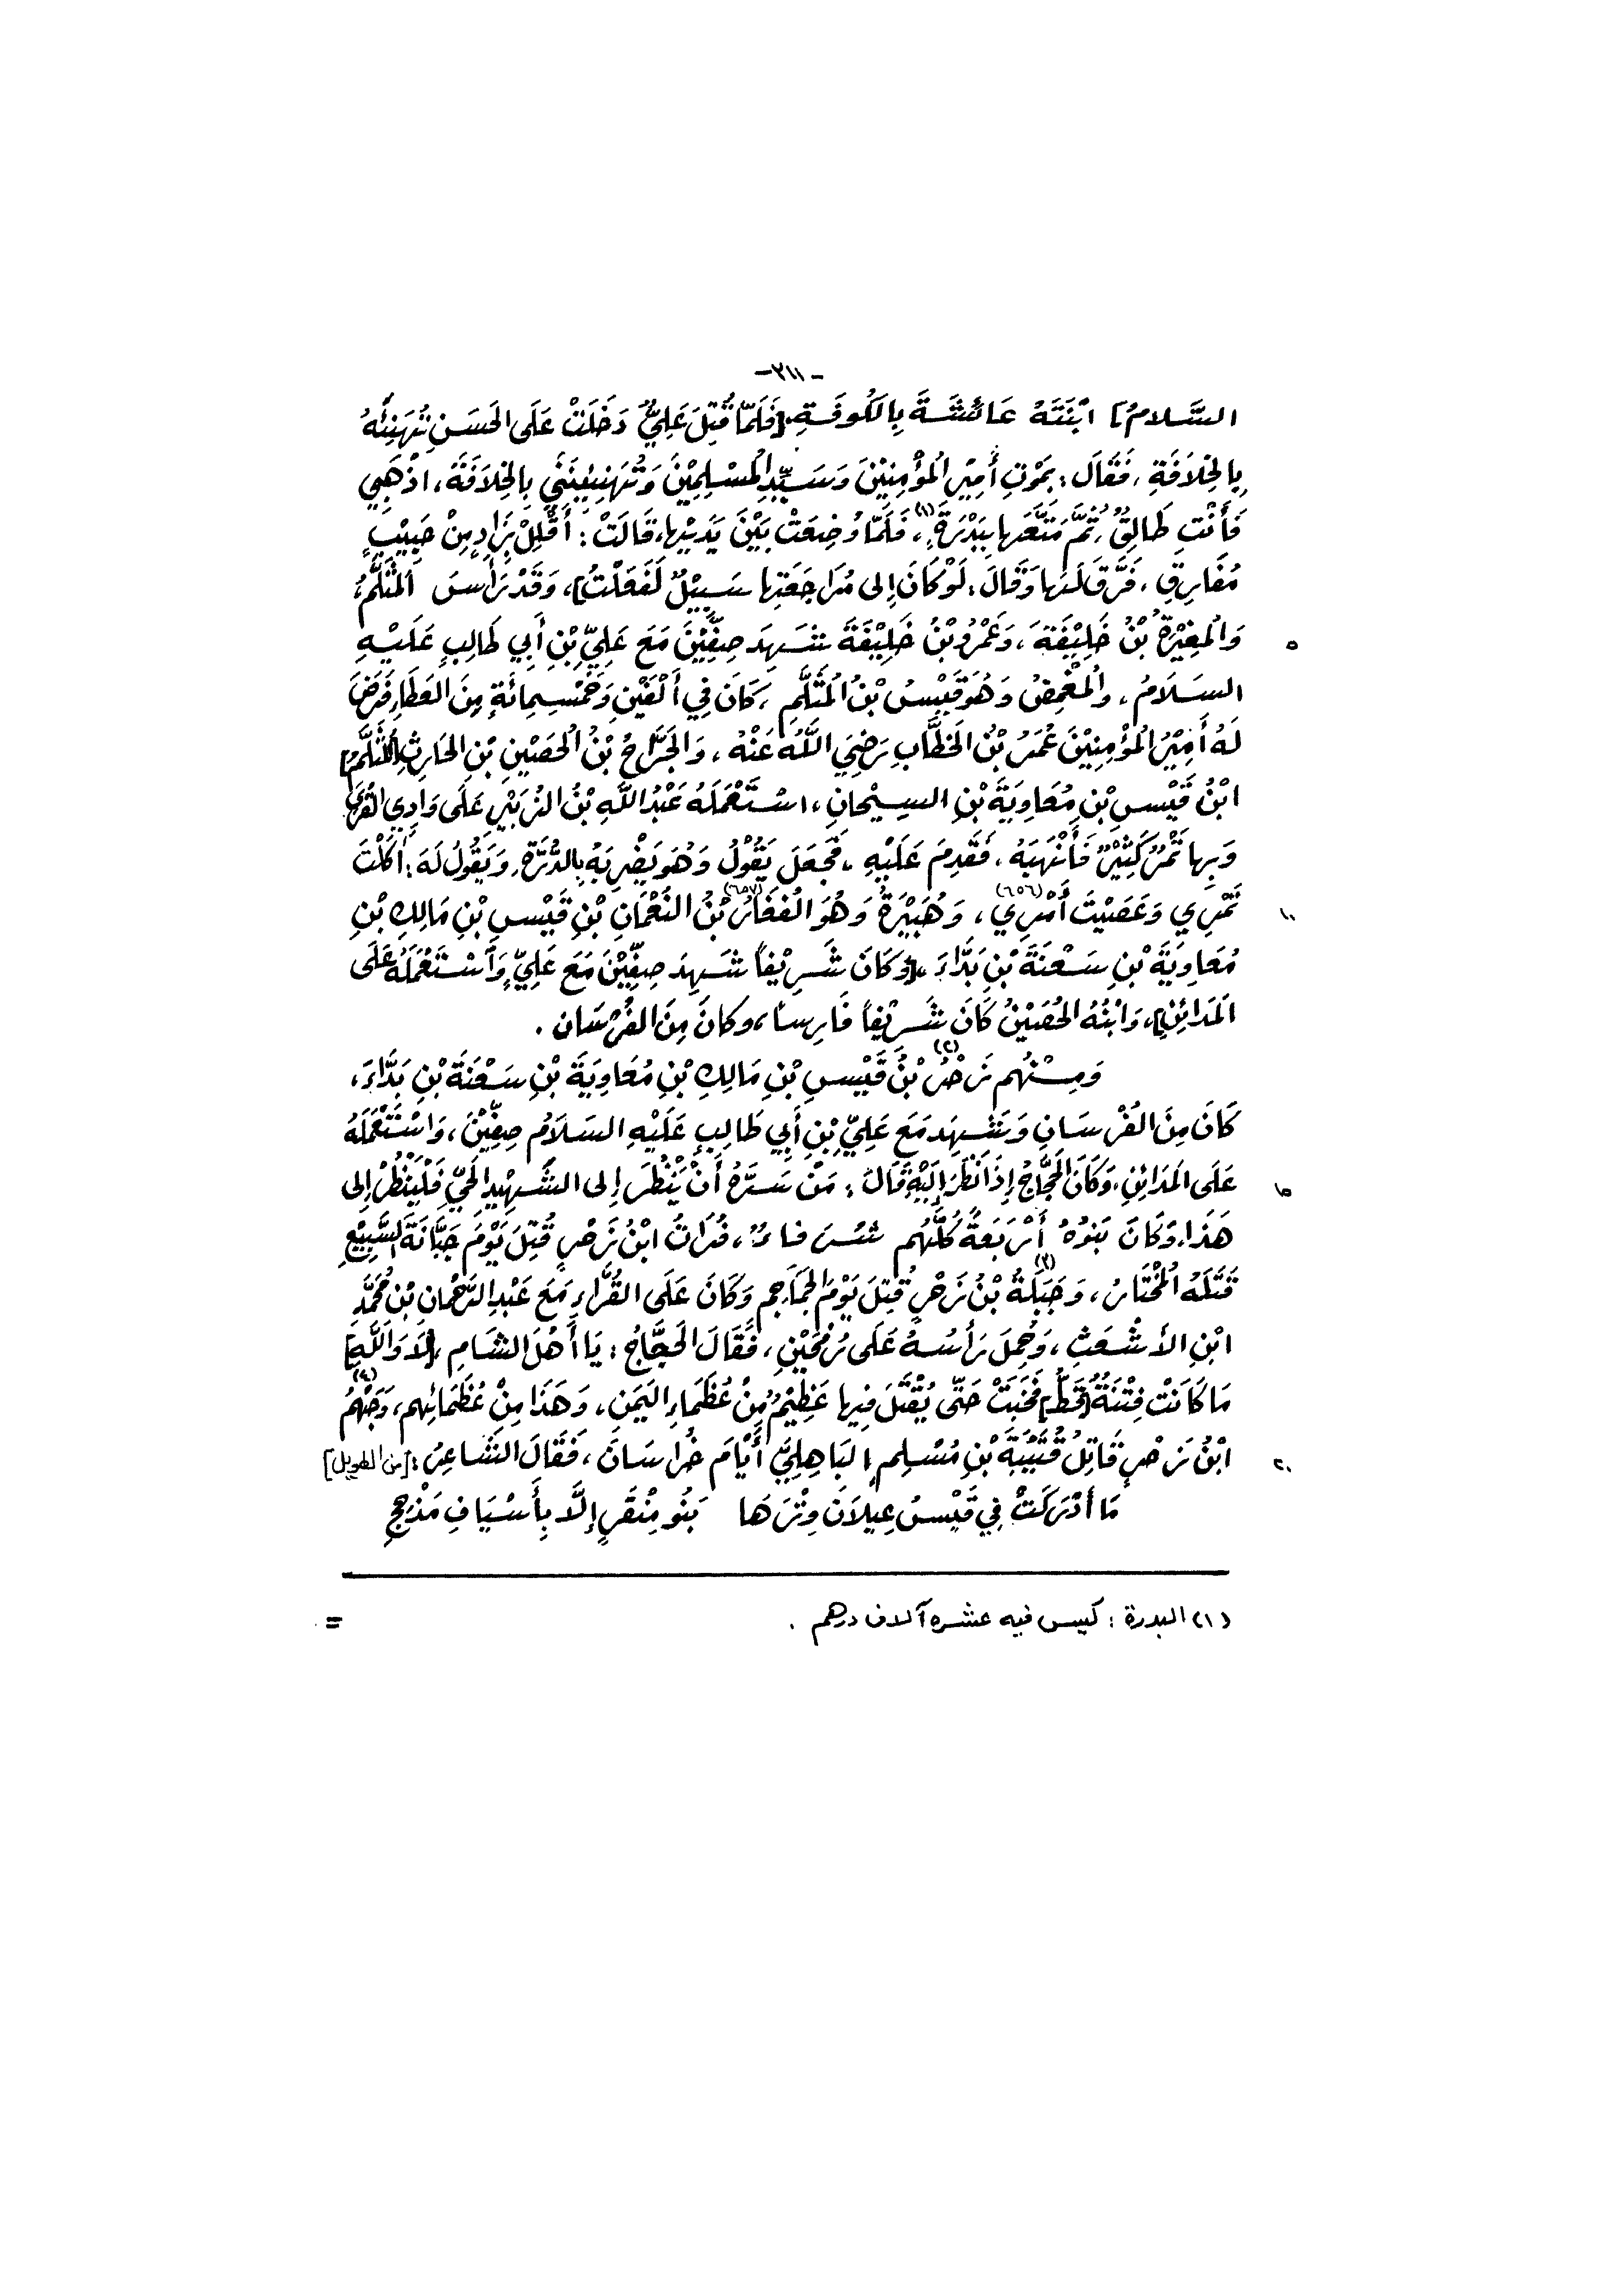 -٣١١-
السَّلامُ] ابْنَتَهُ عَائشَةَ بِالكُوفَةِ.[فَلَمَّا قُتِلَ عَلِيٌّ دَخَلَتْ عَلَى الحَسَنِ تُهَنِئُهُ
بِالخِلَافَةِ، فَقَالَ: بِمَوْتِ أَمِيْرِ المُؤْمِنِيْنَ وَسَيِّدِ المُسْلِمِيْنَ وَتُهَنِيئِينَنِي بِالخِلاَفَةَ، اذْهَبِي
فَأَنْتِ طَالِقٌ، ثُمَّ مَتَّعَها بِبَدْرَةٍ(١)، فَلَمَّا وُضِعَتْ بَيْنَ يَدَيْها، قَالَتْ: أَقْلِلْ بِزَادٍ مِنْ حَبِيْبٍ
مُفَارِقِ، فَرَّقَ لَهَا وَقَالَ: لَوْ كَانَ إِلى مُرَاجَعَتِها سَبِيْلٌ لَفَعَلْتُ]، وَقَدْ رَأسَ المُثَلَّمُ،
وَالمُغِيْرَةُ بْنُ خَلِيْفَةَ، وَعَمْرُو بْنُ خَلِيْفَةَ شَهِدَ صِفِّيْنَ مَعَ عَلِيِّ بْنِ أَبِي طَالِبٍ عَلَيْهِ ٥
السَلَامُ، والمُغْمِضُ وَهُوَ قَيْسُ بْنُ المُثَلَّمِ، كَانَ فِي أَلْفَيْنِ وَخَمْسِمِائَةٍ مِنَ العَطَاءِ فَرَضَ
لَهُ أَمِيْرُ المُؤْمِنِيْنَ عُمَرُ بْنُ الخَطَّابِ رَضِيَ اللَّهُ عَنْهُ، وَالجَرَّاحُ بْنُ الحَصَيْنِ بْنِ الحَارِثِ [المُثَلَّمُ]
ابْنُ قَيْسِ بْنِ مُعَاوِيَةَ بْنِ السِيْحانِ، اسْتَعْمَلَهُ عَبْدُ اللَّهِ بْنُ الزُبَيْرِ عَلَى وَادِي القُرَى
وَبِها تَمْرٌ كَثِيْرٌ فَأَنْهَبَهُ، فَقَدِمَ عَلَيْهِ، فَجَعَلَ يَقُوْلُ وَهُوَ يَضْرِبَهُ بِالدُّرَّةِ، وَيَقُولُ لَهَ: أَكَلْتَ
تَمْرِي وَعَصَيْتَ أَمْرِي(٦٥٦)، وَهُبَيْرَةُ وَهُوَ الغفَارُ(٦٥٧) بْنُ النَعْمَانِ بْنِ قَيْسِ بْنِ مَالِكِ بْنِ ١٠
مُعَاوِيَةَ بْنِ سَعْنَةَ بْنِ بَدَّاءَ، [وَكَانَ شَرِيْفاً شَهِدَ صِفِّيْنَ مَعَ عَلِيٍّ وَاسْتَعْمَلَهُ عَلَى
المَدَائِنِ]، وَابْنُهُ الحُصَيْنُ كَانَ شَرِيْفاً فَارِساً، وكانَ مِنَ الفُرْسَان.
وَمِنْهُم زَحْرُ(٢) بْنُ قَيْسِ بْنِ مَالِكِ بْنِ مُعَاوِيَةَ بْنِ سَعْنَةَ بْنِ بَدَّاءَ،
كَانَ مِنَ الفُرْسَانِ وَشَهِدَ مَعَ عَلِيِّ بْنِ أَبِي طَالِبٍ عَلَيْهِ السَلَامُ صِفِّيْنَ، وَاسْتَعْمَلَهُ
عَلَى المَدَائِنِ، وَكَانَ الحَجَّاجُ إِذَا نَظَرَ إِلَيْهِ قَالَ: مَنْ سَرَّهُ أَنْ يَنْظُرَ إِلى الشَهِيْدِ الحَيِّ فَلْيَنْظُرْ إِلى ١٥
هَذَا، وَكَانَ بَنُوْهُ أَرْبَعَةً كُلُّهُم فُرَاتُ ابْنُ زَحْرٍ قُتِلَ يَوْمَ جَبَّانَةَ السَّبِيْعِ
قَتَلَهُ المُخْتَارُ، وَجَبَلَةُ(٣) بْنُ زَحْرٍ قُتِلَ يَوْمَ الجَمَاجِمِ وَكَانَ عَلَى القُرَّاءِ مَعَ عَبْدِ الرَحْمانِ بْنِ مُحَمَّدِ
ابْنِ الأَشْعَثِ، وَحُمِلَ رَأسُهُ عَلَى رُمْحَيْنِ، فَقَالَ الحَجَّاجُ: يَا أَهْلَ الشَامِ، [لَا وَاللَّهِ]
مَا كَانَتْ فِتْنَةٌ [قَطُّ] فَخَبَتْ حَتَّى يُقْتَلَ فِيها عَظِيْمٌ مِنْ عُظَمَاءِ اليَمَنِ، وَهَذَا مِنْ عُظَمَائِهِم، وَجَهْمُ(٤)
ابْنُ زَحْرٍ قَاتِلُ قُتَيْبَةَ بْنِ مُسْلِمٍ البَاهِلِيِّ أَيَّامَ خُراسَانَ، فَقَالَ الشَاعِرُ: [من الطويل] ٢٠
مَا أَدْرَكَتْ فِي قَيْسُ عِيلَانَ وِتْرَهَا بَنُو مِنْقَرٍ إلَّا بِأَسْيَافِ مَذْحِجِ
(١) البدرة: كيس فيه عشرة آلاف درهم.
=